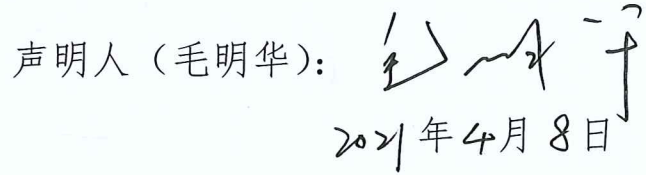 声明人（毛明华）：毛明华
2021年4月8日